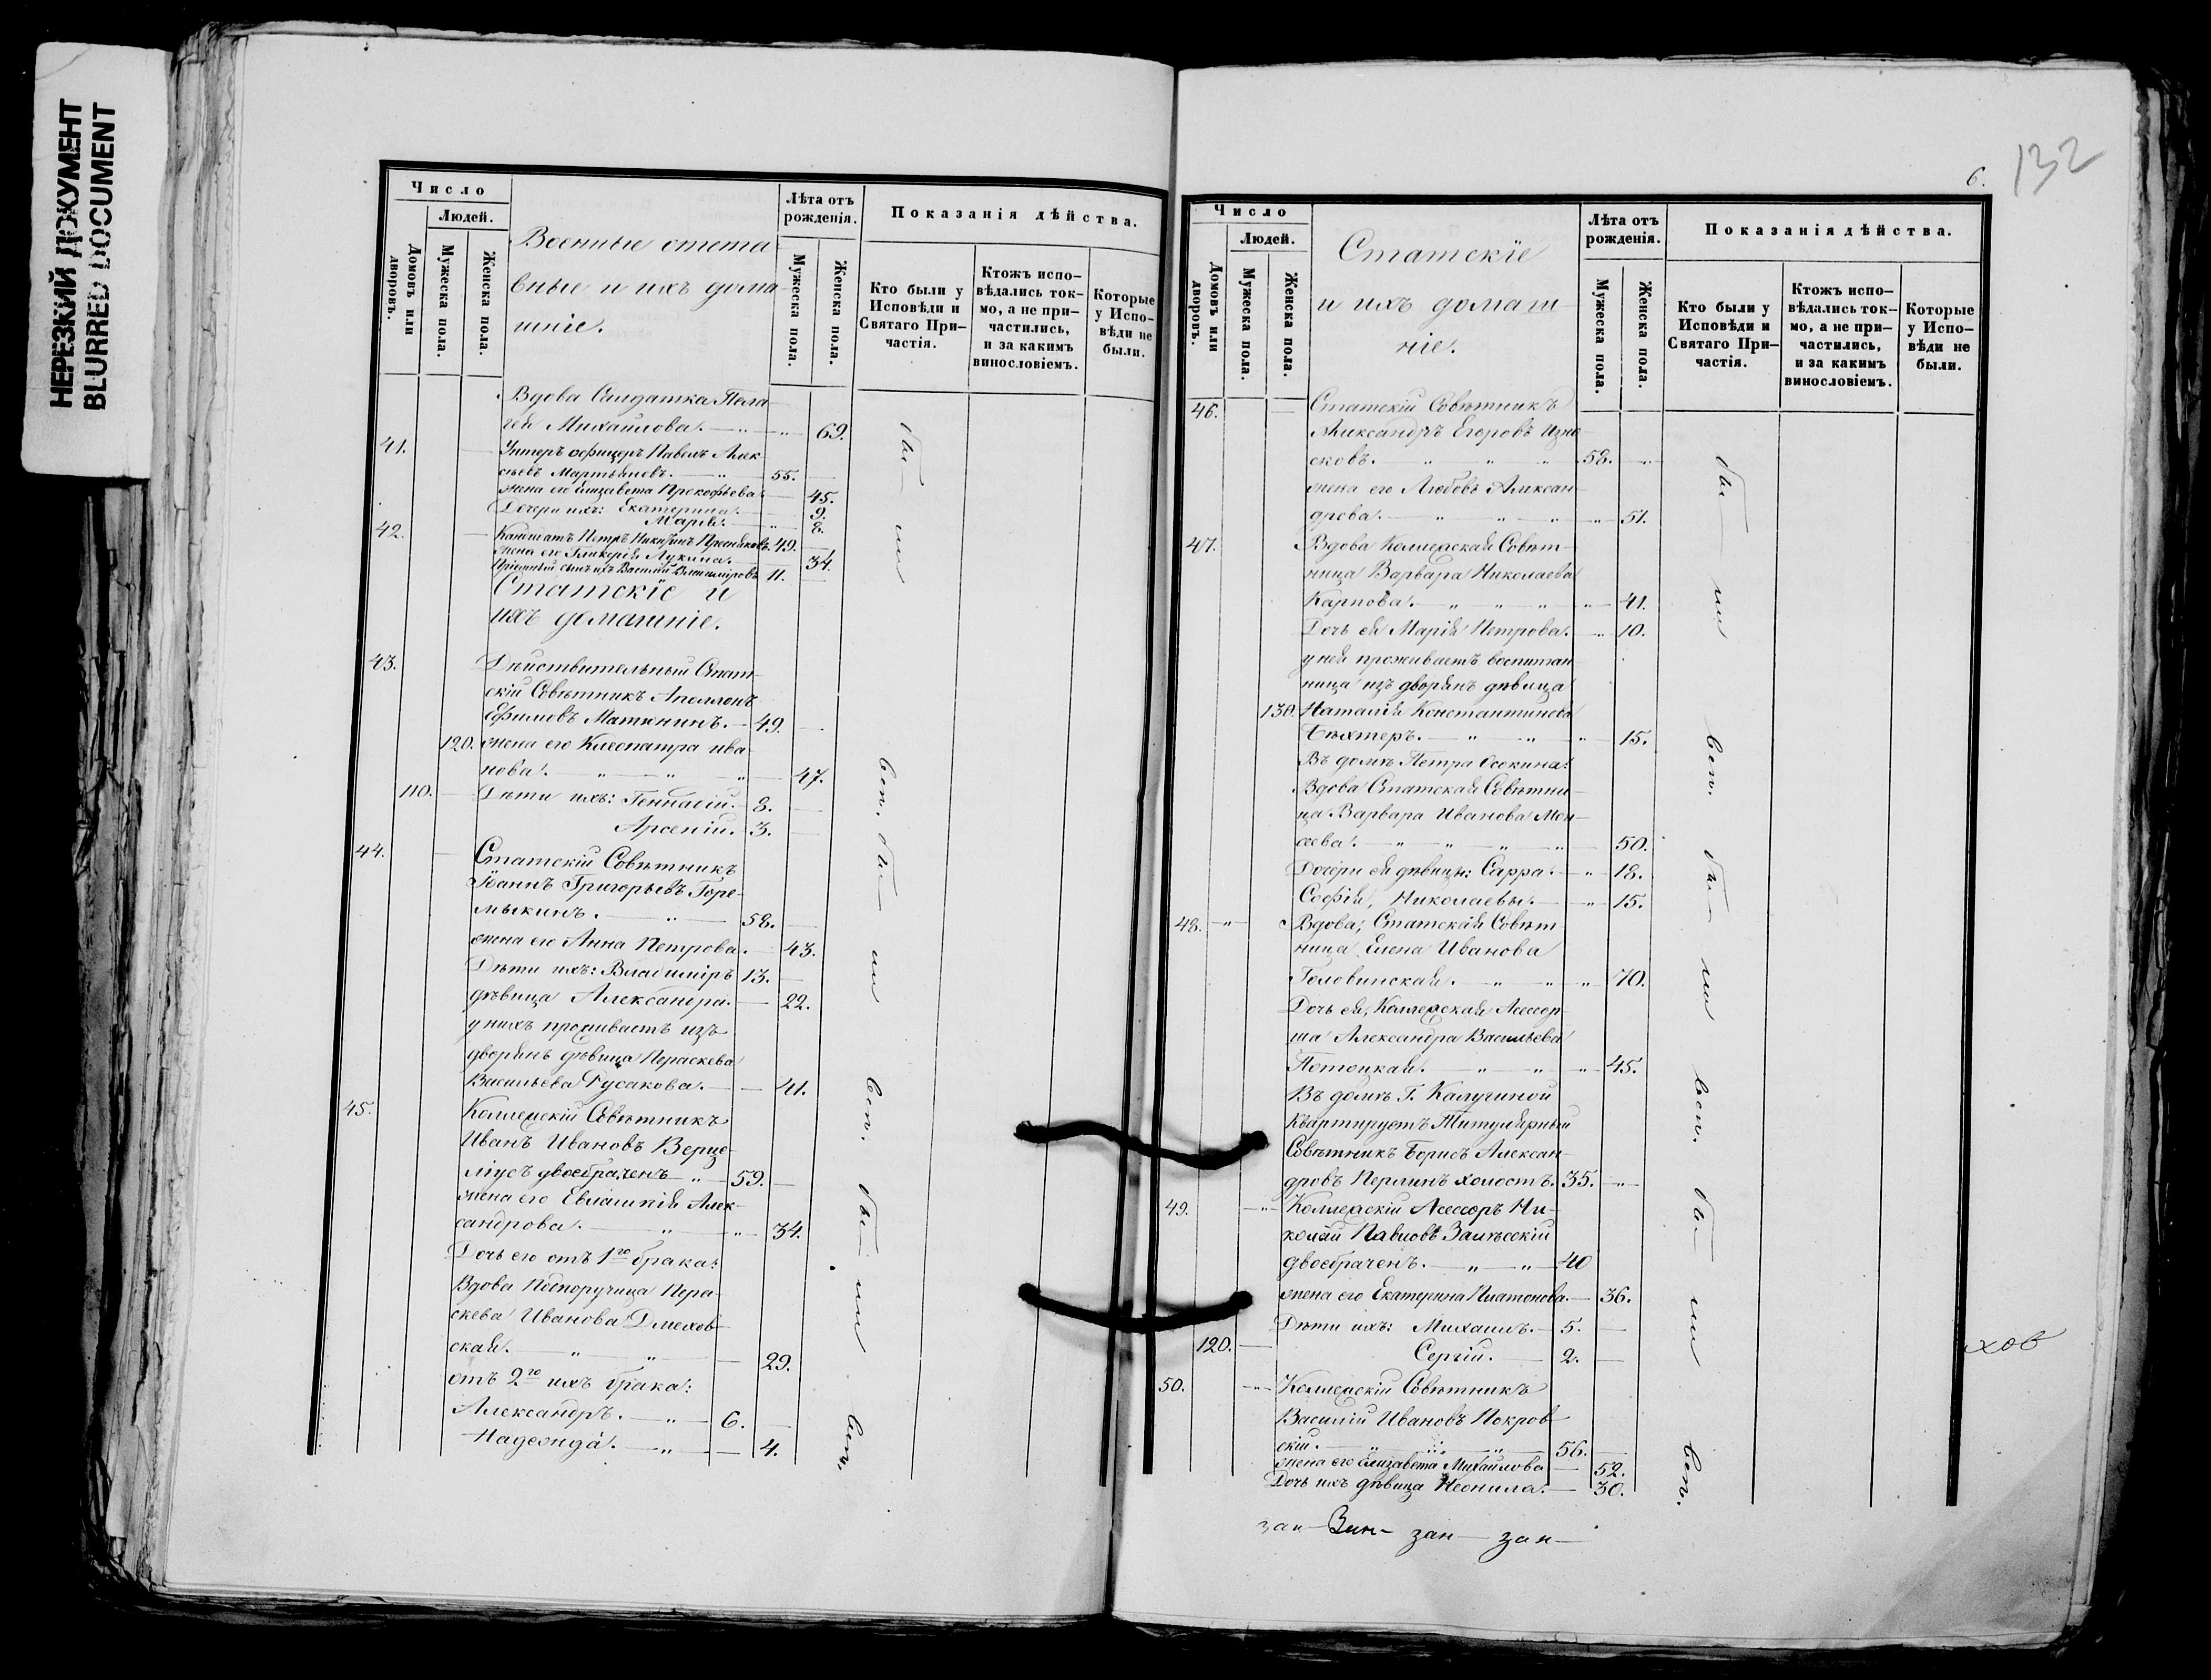 НЕРЕЗКИЙ ДОКУМЕНТ
BLURRED DOCUMENT
Число
Людей.
Домовъ или дворовъ.
Мужеска пола.
Женска пола.
Военные отста
вные и ихъ дома
шніе.
Лѣта отъ рожденія.
Мужеска пола.
Женска пола.
Показанія дѣйства.
Кто были у Исповѣди и Святаго При-частія.
Ктожъ испо-вѣдались ток-мо, а не при-частились, и за какимъ винословіемъ.
Которые у Испо-вѣди не были.
Вдова Солдатка Пела
гея Михайлова. 69.
41. Унтеръ офицеръ Павелъ Алек
сѣевъ Мартьяновъ. 55.
жена его Елизавета Прокофьева. 45.
Дочери ихъ: Екатерина. 9.
Марія. 8.
42. Петръ 49.
жена его Гликерія Лукина. 34.
сынъ ихъ Василій 11.
Статскіе и
ихъ домашніе.
43. Дѣйствительный Стат
скій Совѣтникъ Аполлонъ
Ефимовъ Матюнинъ. 49.
120. жена его Клеопатра Ива
нова. 47.
110. Дѣти ихъ: Геннадій. 8.
Арсеній. 3.
44. Статскій Совѣтникъ
Іоаннъ Григорьевъ Горе-
мыкинъ. 58.
жена его Анна Петрова. 43.
Дѣти ихъ: Владиміръ 13.
дѣвица Александра. 22.
у нихъ проживаетъ изъ
дворянъ дѣвица Параскева
Васильева Русакова. 41.
45. Коллежскій Совѣтникъ
Иванъ Ивановъ Верце-
ліусъ двоебраченъ 59.
жена его Евлампія Алек-
сандрова. 34.
Дочь его отъ 1го брака:
Вдова Подпоручица Пара-
скева Иванова Дмехов-
ская. 29.
отъ 2го ихъ брака:
Александръ. 6.
Надежда. 4.
бы ли всп. бы ли всп. бы ли всп.
132
6.
Число
Людей.
Домовъ или дворовъ.
Мужеска пола.
Женска пола.
Статскіе
и ихъ домаш-
ніе.
Лѣта отъ рожденія.
Мужеска пола.
Женска пола.
Показанія дѣйства.
Кто были у Исповѣди и Святаго При-частія.
Ктожъ испо-вѣдались ток-мо, а не при-частились, и за какимъ винословіемъ.
Которые у Испо-вѣди не были.
46. Статскій Совѣтникъ
Александръ Егоровъ Изно
сковъ. 58.
жена его Любовь Алексан-
дрова. 51.
47. Вдова Коллежская Совѣт-
ница Варвара Николаева
Карпова. 41.
Дочь ея Марія Петрова. 10.
у ней проживаетъ воспитан
ница изъ дворянъ дѣвица
130. Наталія Константинова
Бехтеръ. 15.
Въ домѣ Петра Осокина:
Вдова Статская Совѣтни-
ца Варвара Иванова Мен-
хева. 50.
Дочери ея дѣвицы: Сарра. 18.
Софія, Николаевы. 15.
48. Вдова, Статская Совѣт
ница Елена Иванова
Головинская. 70.
Дочь ея, Коллежская Ассесор-
ша Александра Васильева
Потоцкая. 45.
Въ домѣ Г. Калугиной
Квартируетъ Титулярный
Совѣтникъ Борисъ Алексан-
дровъ Перлинъ холостъ. 35.
49. Коллежскій Асессоръ Ни-
колай Павловъ Залѣсскій
двоебраченъ. 40
жена его Екатерина Платонова. 36.
Дѣти ихъ: Михаилъ. 5.
120. Сергій. 2.
50. Коллежскій Совѣтникъ
Василій Ивановъ Покров-
скій. 56.
жена его Елизавета Михайлова 52.
Дочь ихъ дѣвица Неонила. 30.
бы ли всп. бы ли всп. бы ли всп.
хов
зан— Зан— зан— зан—